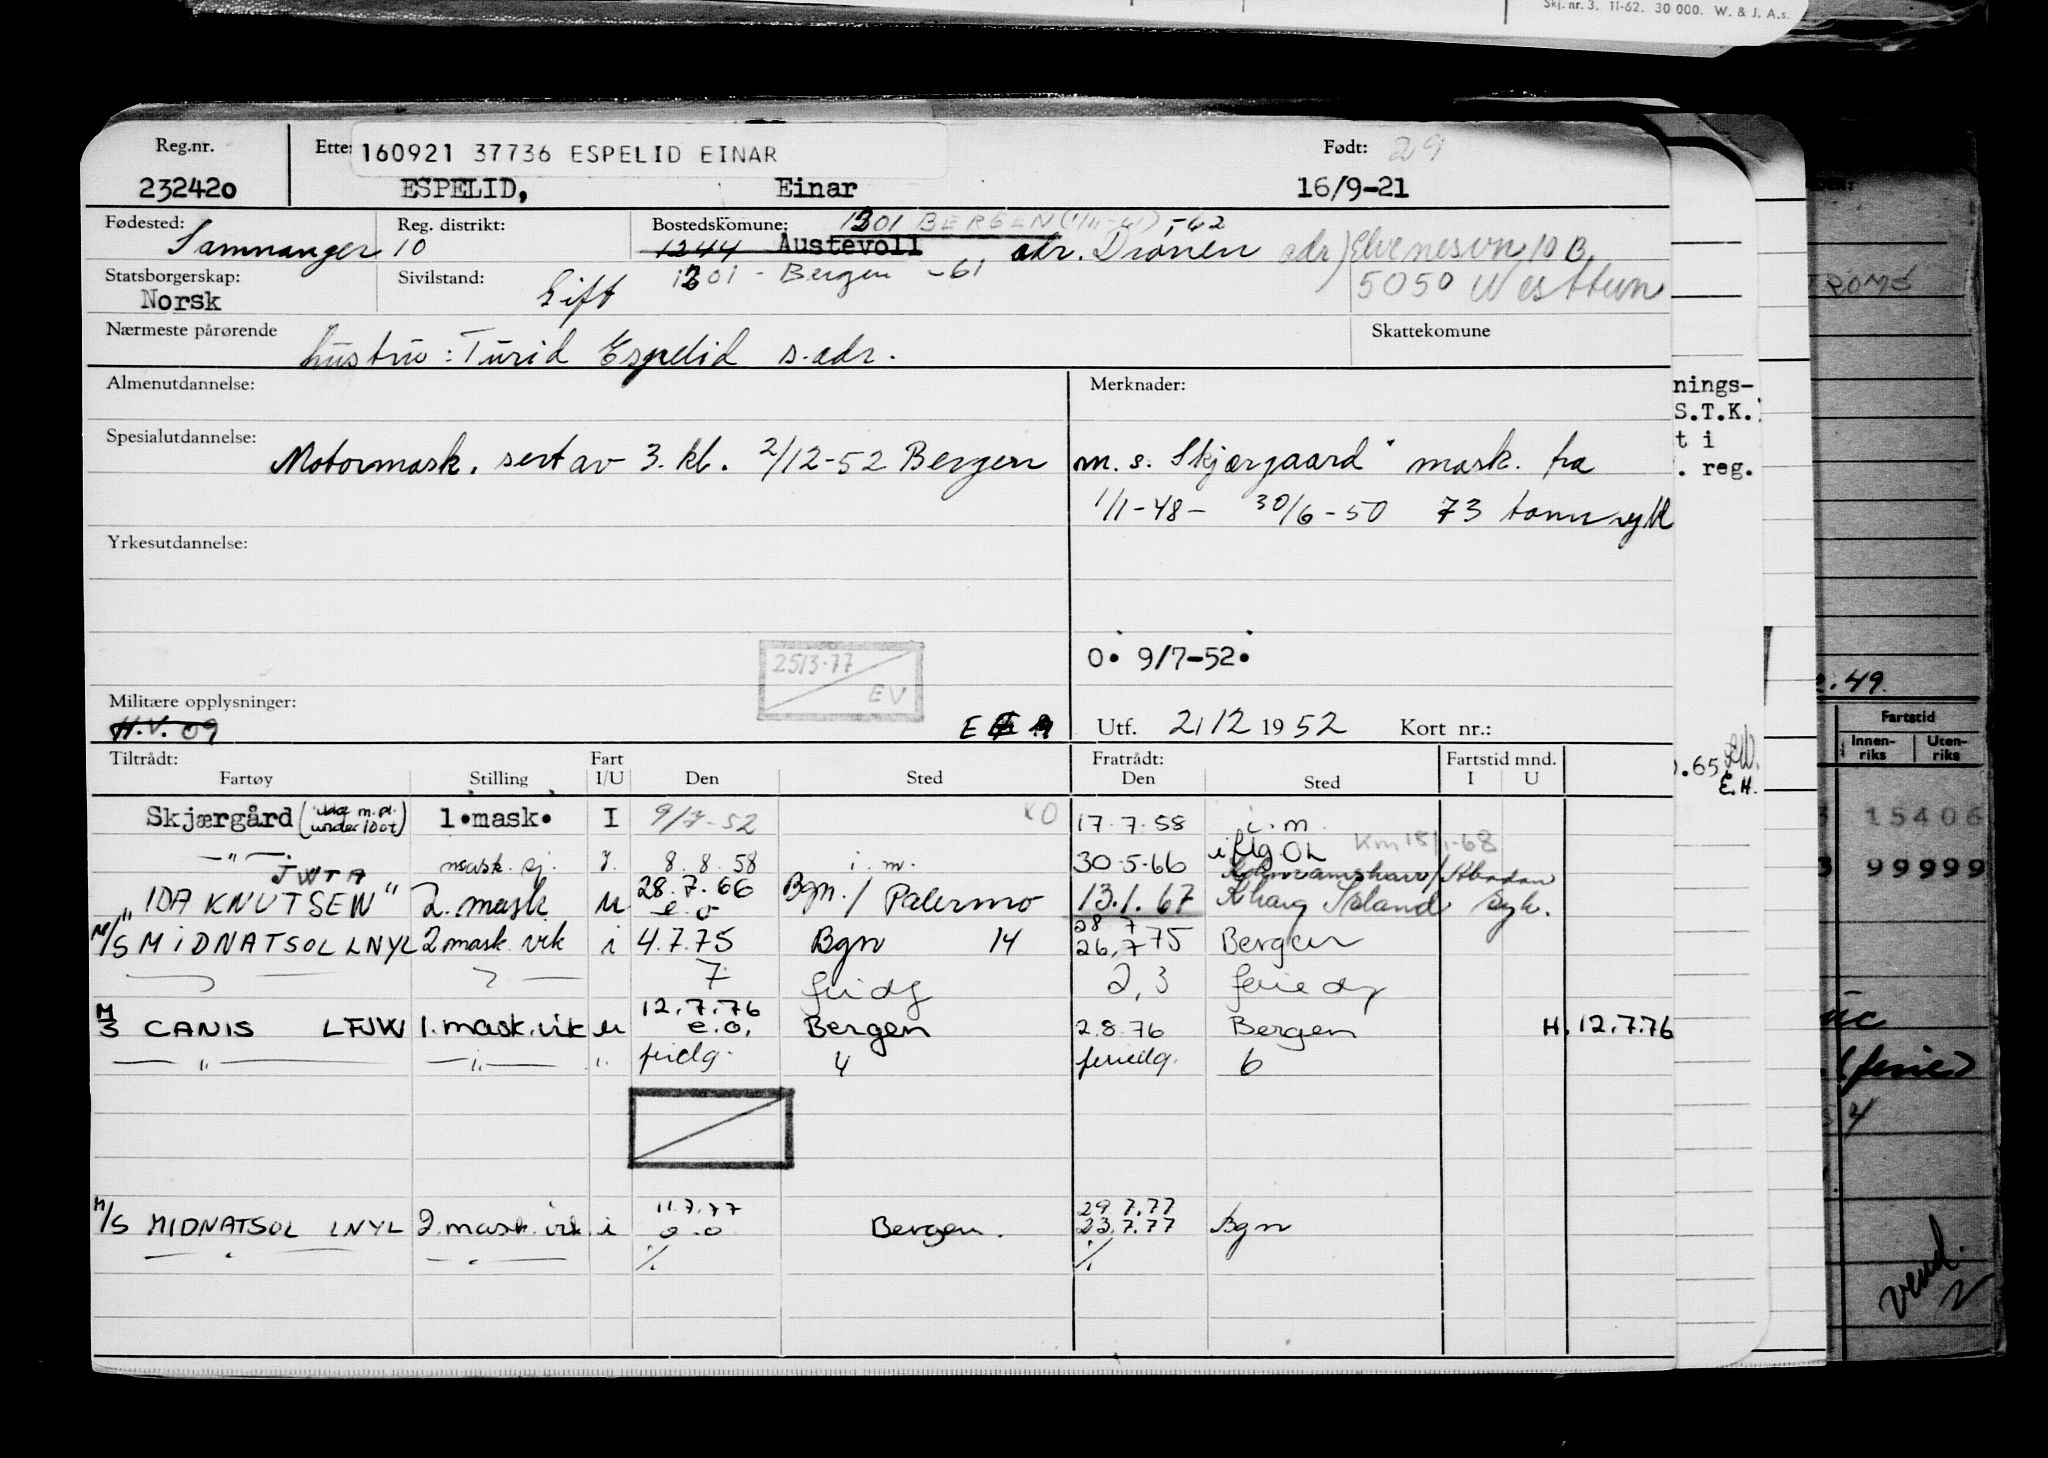 Skj. nr. 3. 11-62. 30 000. W. & J. A.s.
Reg.nr. Etter 160921 37736 ESPELID EINAR Født: 29
232420 ESPELID, Einar 16/9-21
Fødested: Samnanger Reg. distrikt: 10 Bostedskomune: 1301 BERGEN (1/11-61) -62
1244 Austevoll adr. Drönen adr) Elvenesvn 10 B.
Statsborgerskap: Norsk Sivilstand: Gift 1301 - Bergen -61 5050 Nesttun
Nærmeste pårørende hustru: Turid Espelid s. adr. Skattekomune
Almenutdannelse: Merknader:
Spesialutdannelse: Motormask. sert av 3. kl. 2/12-52 Bergen m. s. Skjærgaard mask. fra
1/1-48 - 30/6-50 73 tonn
Yrkesutdannelse:
25/3-77
EV
0. 9/7-52.
Militære opplysninger:
H.V. 09 Utf. 2/12 1952 Kort nr.:
Tiltrådt: Fart Fratrådt: Fartstid mnd.
Fartøy Stilling I/U Den Sted Den Sted I U
Skjærgård (under 100t) 1.mask. I 9/7-52 17.7.58 i.m.
—"— 8.8.58 i.m. 30.5.66 Km 15/1-68
JWTA
"IDA KNUTSEN" 2. mask u 28.7.66 e.o Bgn. / Palermo 13.1.67 Kharg Island syk.
M/S MIDNATSOL LNYL 2 mask. vik i 4.7.75 Bgn 14 28 7 26.7 75 Bergen
7 feridg 2,3 feriedg
M/S CANIS LFJW 1. mask. vik u 12.7.76 e.o. Bergen 2.8.76 Bergen H. 12.7.76
—"— —"— " feridg. 4 feriedg. 6
M/S MIDNATSOL LNYL 2. mask. vik. i 11.7.77 o.o Bergen. 29.7.77 23.7.77 Bgn
—"— —"— %. %.
nings-
S.T.K.
t i
. reg.
.65
E.H.
.49.
Fartstid
Innen-riks Uten-riks
15406
99999
(ferie)
vend